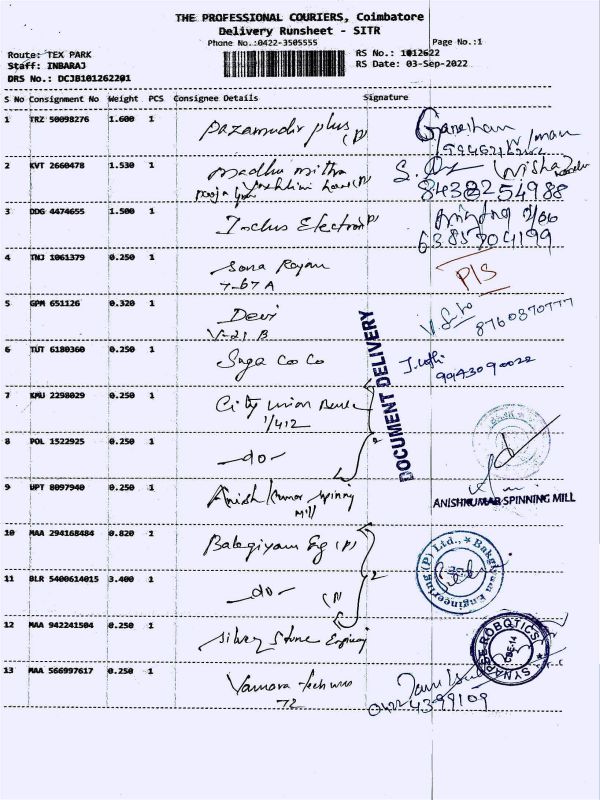 THE PROFESSIONAL COURIERS, Coimbatore
Delivery Runsheet - SITR
Phone No.:0422-3505555
Page No.:1
Route: TEX PARK
RS No.: 1012622
Staff: INBARAJ
RS Date: 03-Sep-2022
DRS No.: DCJB101262201
S No Consignment No Weight PCS Consignee Details Signature
1 TRZ 50098276 1.600 1 Pazamudir plus (P)
Ganesham
2 KVT 2660478 1.530 1 madhu mitra
8438254988
3 DDG 4474655 1.500 1 Inclus Electron
6385704199
4 TNJ 1061379 0.250 1 Sona Rayan
7-67 A
P/S
5 GPM 651126 0.320 1 Devi
V-21 B
8760870777
6 TUT 6180360 0.250 1 Suga Co Co
9943090022
DOCUMENT DELIVERY
7 KMU 2298029 0.250 1 City union Bank
1/412
8 POL 1522925 0.250 1 -do-
2
9 UPT 8097940 0.250 1 Anish Kumar spinning
Mill
ANISHKUMAR SPINNING MILL
10 MAA 294168484 0.820 1 Balagiyam Eg (P)
11 BLR 5400614015 3.400 1 -do-
2
Bakgiyam Engineering (P) Ltd.,
12 MAA 942241504 0.250 1 silver stone Engineering
SYNAPSE ROBOTICS
CBE-14
13 MAA 566997617 0.250 1 Yamora techwo
72
0422 4399109